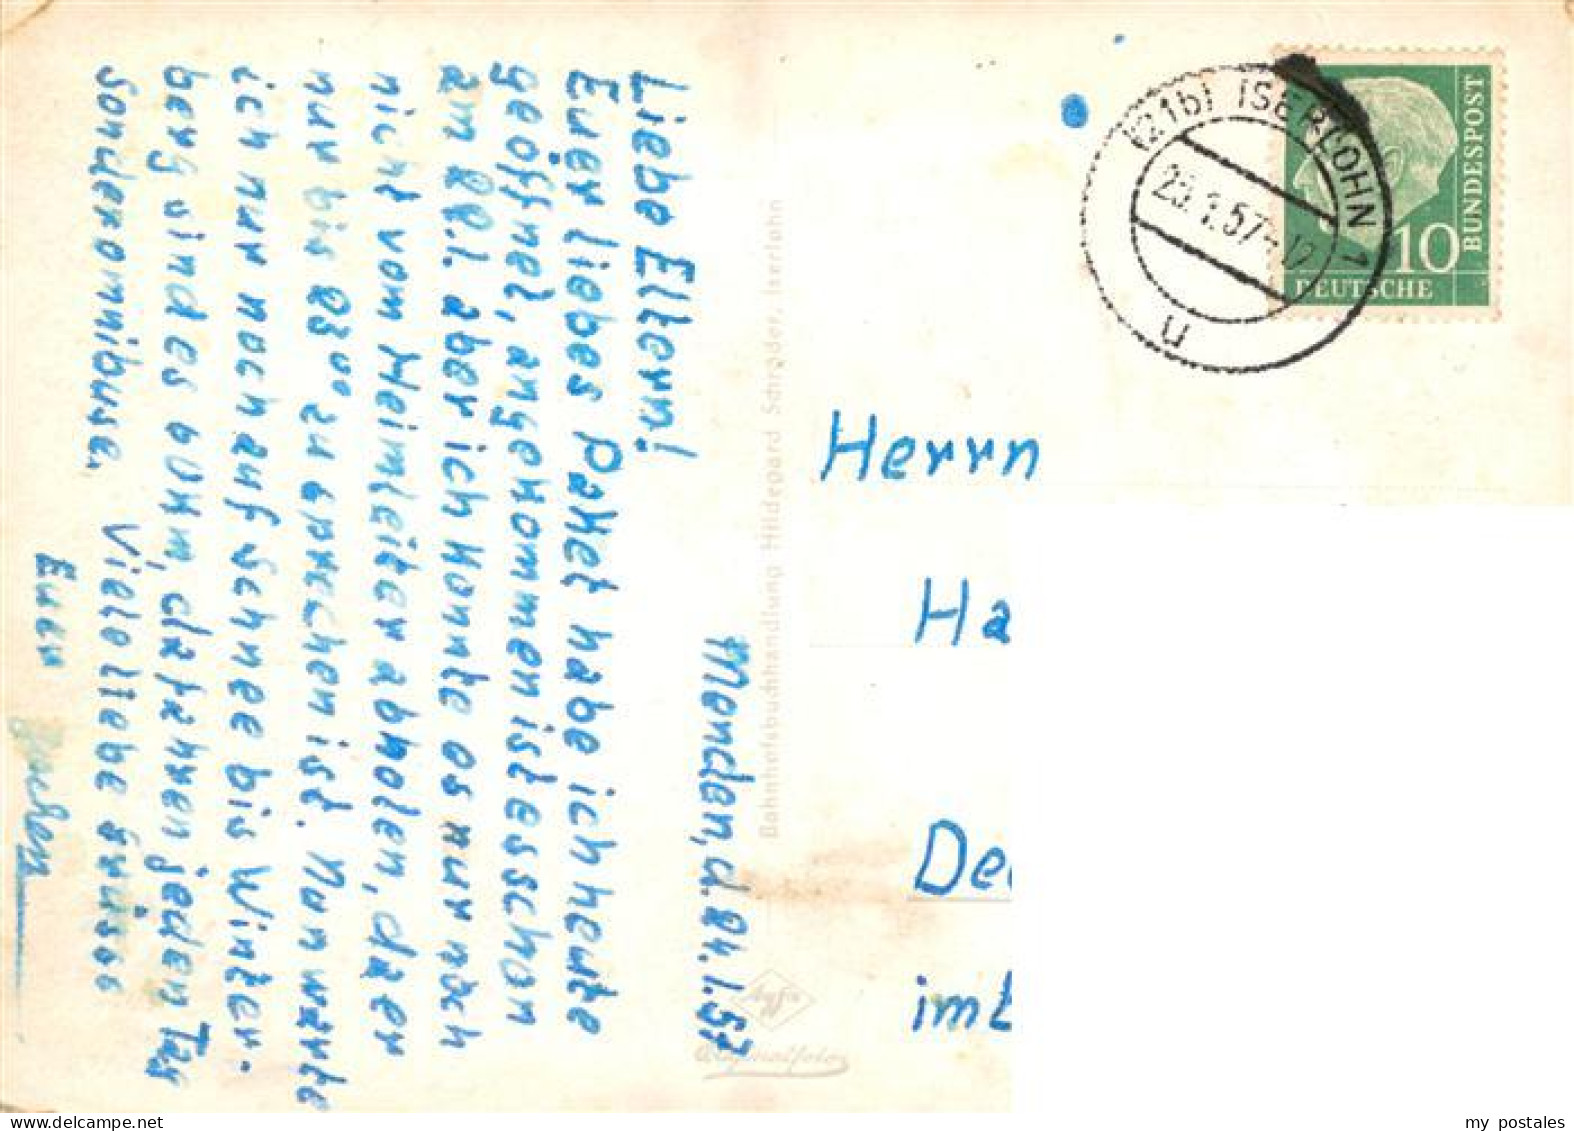 Menden, d. 24.1.57
Liebe Eltern!
Euer liebes Paket habe ich heute
geöffnet, angekommen ist es schon
am 22.1. aber ich konnte es nur noch
nicht vom Heimleiter abholen, da er
nur bis 23⁰⁰ zu sprechen ist. Nun warte
ich nur noch auf Schnee bis Winter-
berg sind es 60 km, da fahren jeden Tag
Sonderomnibuse. Viele liebe Grüsse
Euer
Jochen
Bahnhofsbuchhandlung Hildegard Schröder, Iserlohn
Agfa
Originalfoto
(21b) ISERLOHN 1
23.1.57-12
u
10
DEUTSCHE
BUNDESPOST
Herrn
Ha
De
im
my postales